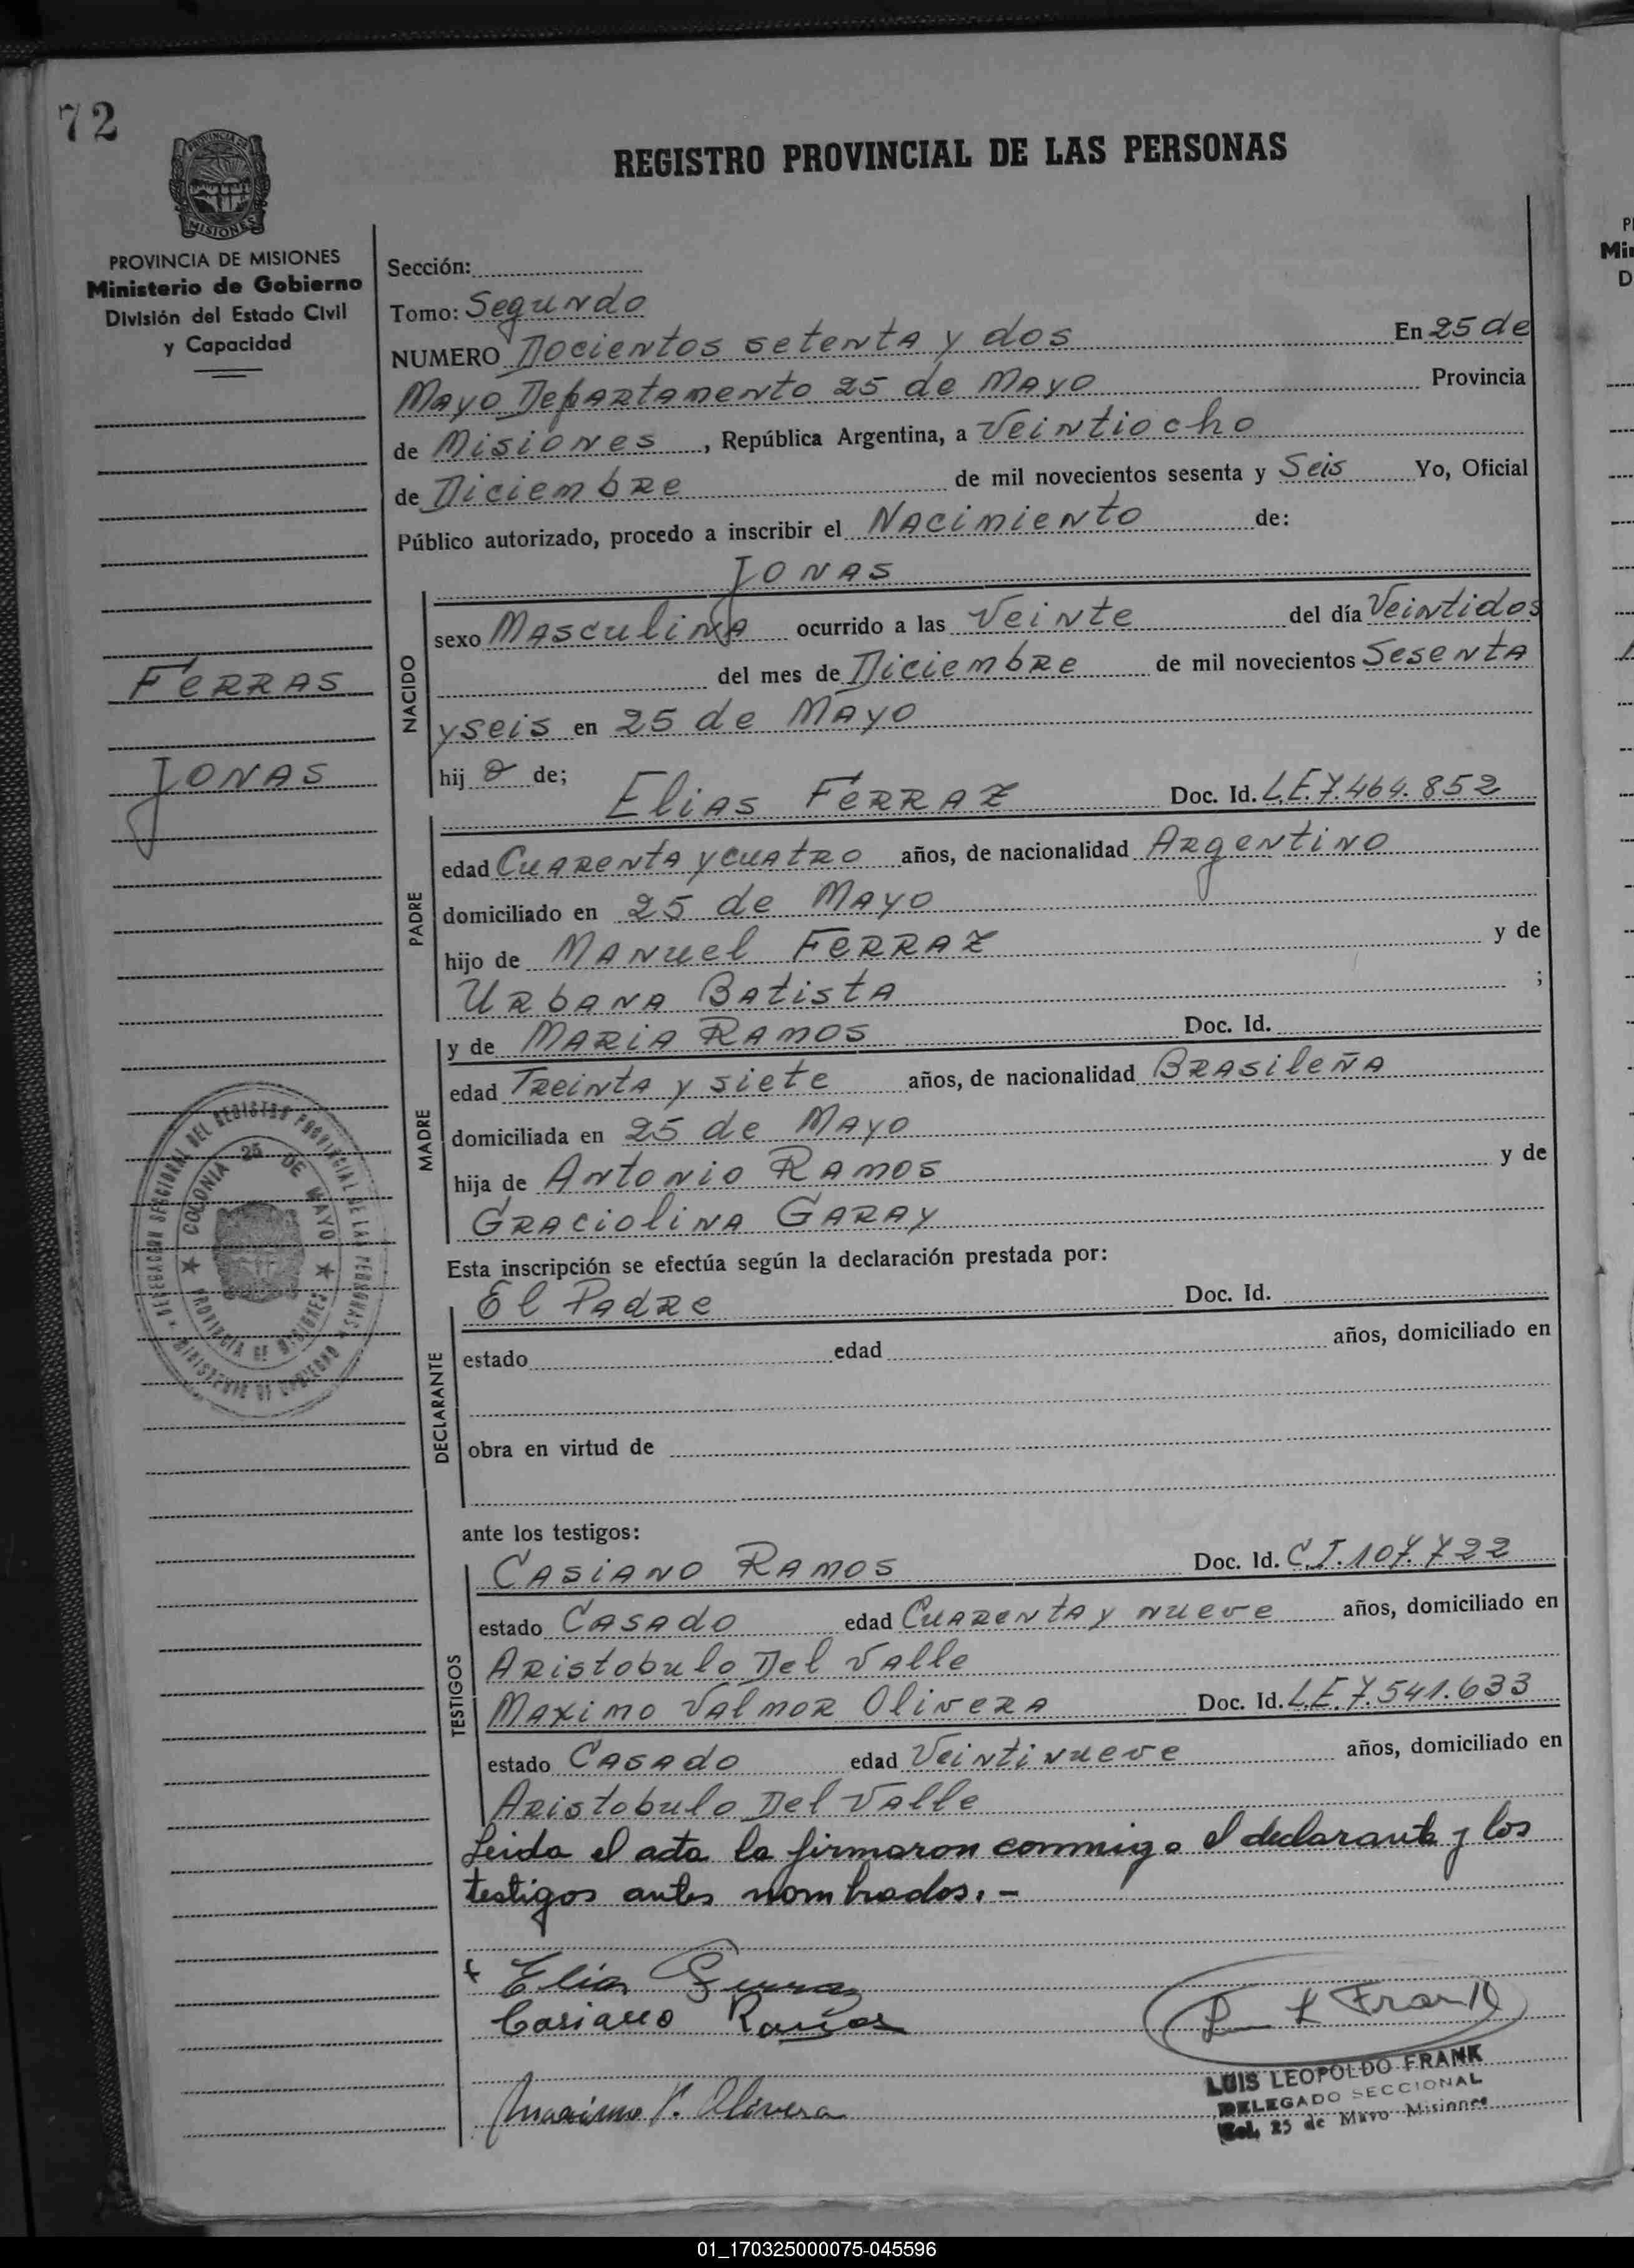 72
PROVINCIA DE
MISIONES
REGISTRO PROVINCIAL DE LAS PERSONAS
PROVINCIA DE MISIONES
Ministerio de Gobierno
División del Estado Civil
y Capacidad
FERRAS
JONAS
DELEGACION SECCIONAL DEL REGISTRO PROVINCIAL DE LAS PERSONAS
MINISTERIO DE GOBIERNO
COLONIA 25 DE MAYO
PROVINCIA DE MISIONES
Sección:
Tomo: Segundo
NUMERO Docientos setenta y dos En 25 de
Mayo Departamento 25 de Mayo Provincia
de Misiones, República Argentina, a Veintiocho
de Diciembre de mil novecientos sesenta y Seis Yo, Oficial
Público autorizado, procedo a inscribir el Nacimiento de:
JONAS
NACIDO
sexo Masculina ocurrido a las Veinte del día Veintidos
del mes de Diciembre de mil novecientos Sesenta
y seis en 25 de Mayo
hij o de;
Elias FERRAZ Doc. Id. L.E.7.464.852
PADRE
edad Cuarenta y cuatro años, de nacionalidad Argentino
domiciliado en 25 de Mayo
hijo de Manuel FERRAZ y de
Urbana Batista ;
y de Maria Ramos Doc. Id.
MADRE
edad Treinta y siete años, de nacionalidad Brasileña
domiciliada en 25 de Mayo
hija de Antonio Ramos y de
Graciolina Garay
Esta inscripción se efectúa según la declaración prestada por:
El Padre Doc. Id.
DECLARANTE
estado edad años, domiciliado en
obra en virtud de
ante los testigos:
Casiano Ramos Doc. Id. C.I.107.722
TESTIGOS
estado Casado edad Cuarenta y nueve años, domiciliado en
Aristobulo Del Valle
Maximo Valmor Olivera Doc. Id. L.E.7.541.633
estado Casado edad Veintinueve años, domiciliado en
Aristobulo Del Valle
Leida el acta la firmaron conmigo el declarante y los
testigos antes nombrados. -
Elias Ferraz
Casiano Ramos
L L Frank
Maximo V. Olivera
LUIS LEOPOLDO FRANK
DELEGADO SECCIONAL
Col. 25 de Mayo Misiones
01_170325000075-045596